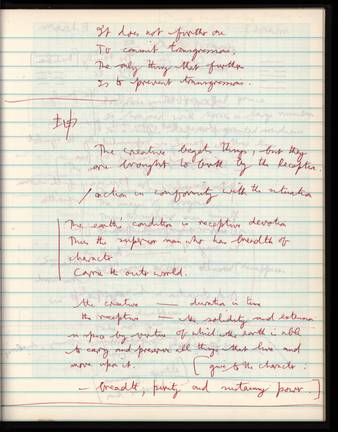 It does not further one
To commit transgressions.
The only thing that furthers
Is to prevent transgressions.
The creative begat things, but they
are brought to birth by the Receptive.
/ action in conformity with the situation
The earth's condition is receptive devotion
Thus the superior man who has breadth of
character
Carries the outer world.
the creative — duration in time
the receptive — the solidity and extension
in space by virtue of which the earth is able
to carry and preserve all things that live and
move upon it. [give to the character:
– breadth, purity and sustaining power.]